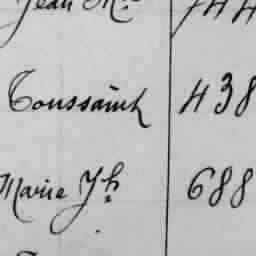 Jean M.ᶜ 744
Toussaint 438
Marie Jʰ. 688